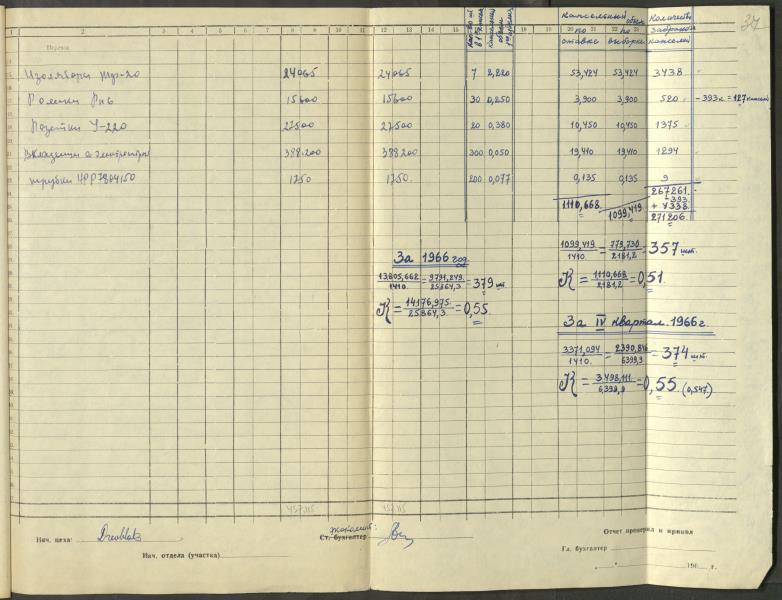 37
капсельный объем
Количество
забранных
капселей
по ставке
по выборке
1 2 3 4 5 6 7 8 9 10 11 12 13 14 15 16 17 18 19 20 21 22 23 24
Изоляторы 24065 24065 7 2,220 53,424 53,424 3438
Ролики 15600 15600 30 0,250 3,900 3,900 520 - 393к = 127
Розетки У-220 27500 27500 20 0,380 10,450 10,450 1375
Вкладыши 388.200 388200 300 0,050 19,410 19,410 1294
трубки 1750 1750. 200 0,077 0,135 0,135 9
1110,668 1099,419 267261.
393.
+ 4338.
271206.
За 1966 год
13.805,662/1410. = 9791,249/25864,3 = 379 шт.
К = 14176,975/25864,3 = 0,55
1099,419/1410. = 779,730/2181,2 = 357 шт.
К = 1110,668/2181,2 = 0,51
За IV квартал 1966г.
3371,094/1410. = 2390,846/6399,9 = 374 шт.
К = 3.498,111/6399,9 = 0,55 (0,547)
457.115 457.115
Нач. цеха:
Ст. бухгалтер
Нач. отдела (участка)
Отчет проверил и принял
Гл. бухгалтер
" " 196 г.